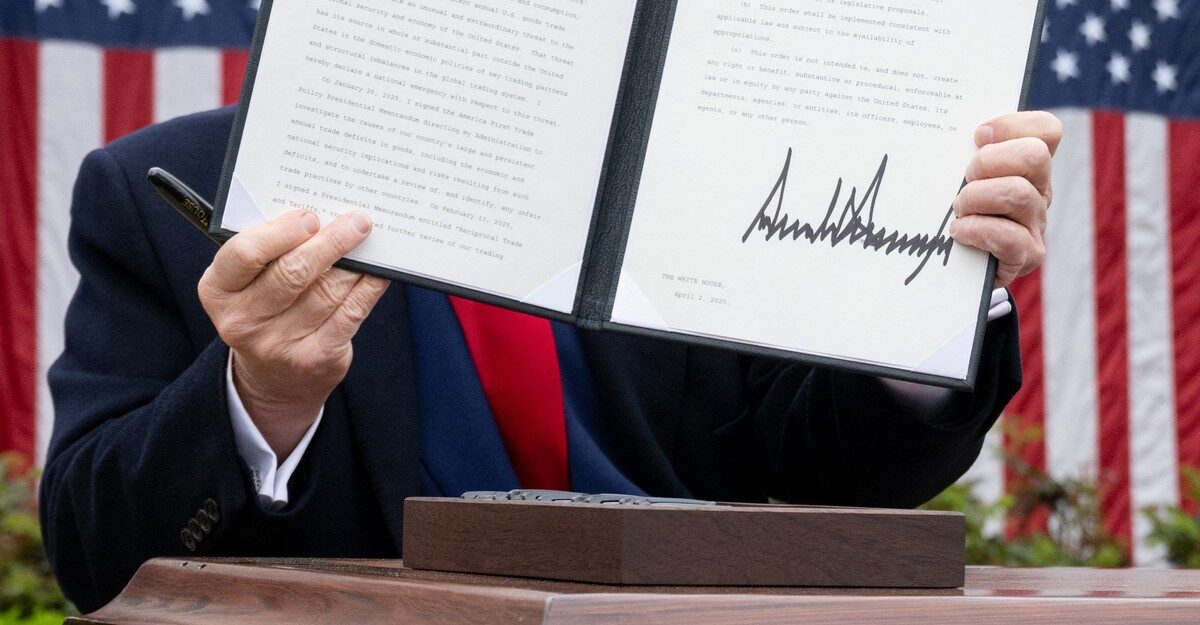 ent annual U.S. goods trade
and consumption,
ate an unusual and extraordinary threat to the
onal security and economy of the United States. That threat
has its source in whole or substantial part outside the United
States in the domestic economic policies of key trading partners
and structural imbalances in the global trading system. I
hereby declare a national emergency with respect to this threat.
On January 20, 2025, I signed the America First Trade
Policy Presidential Memorandum directing my Administration to
investigate the causes of our country's large and persistent
annual trade deficits in goods, including the economic and
national security implications and risks resulting from such
deficits, and to undertake a review of, and identify, any unfair
trade practices by other countries. On February 13, 2025,
I signed a Presidential Memorandum entitled "Reciprocal Trade
and Tariffs," th ed further review of our trading
or legislative proposals.
(b) This order shall be implemented consistent with
applicable law and subject to the availability of
appropriations.
(c) This order is not intended to, and does not, create
any right or benefit, substantive or procedural, enforceable at
law or in equity by any party against the United States, its
departments, agencies, or entities, its officers, employees, or
agents, or any other person.
THE WHITE HOUSE,
April 2, 2025.